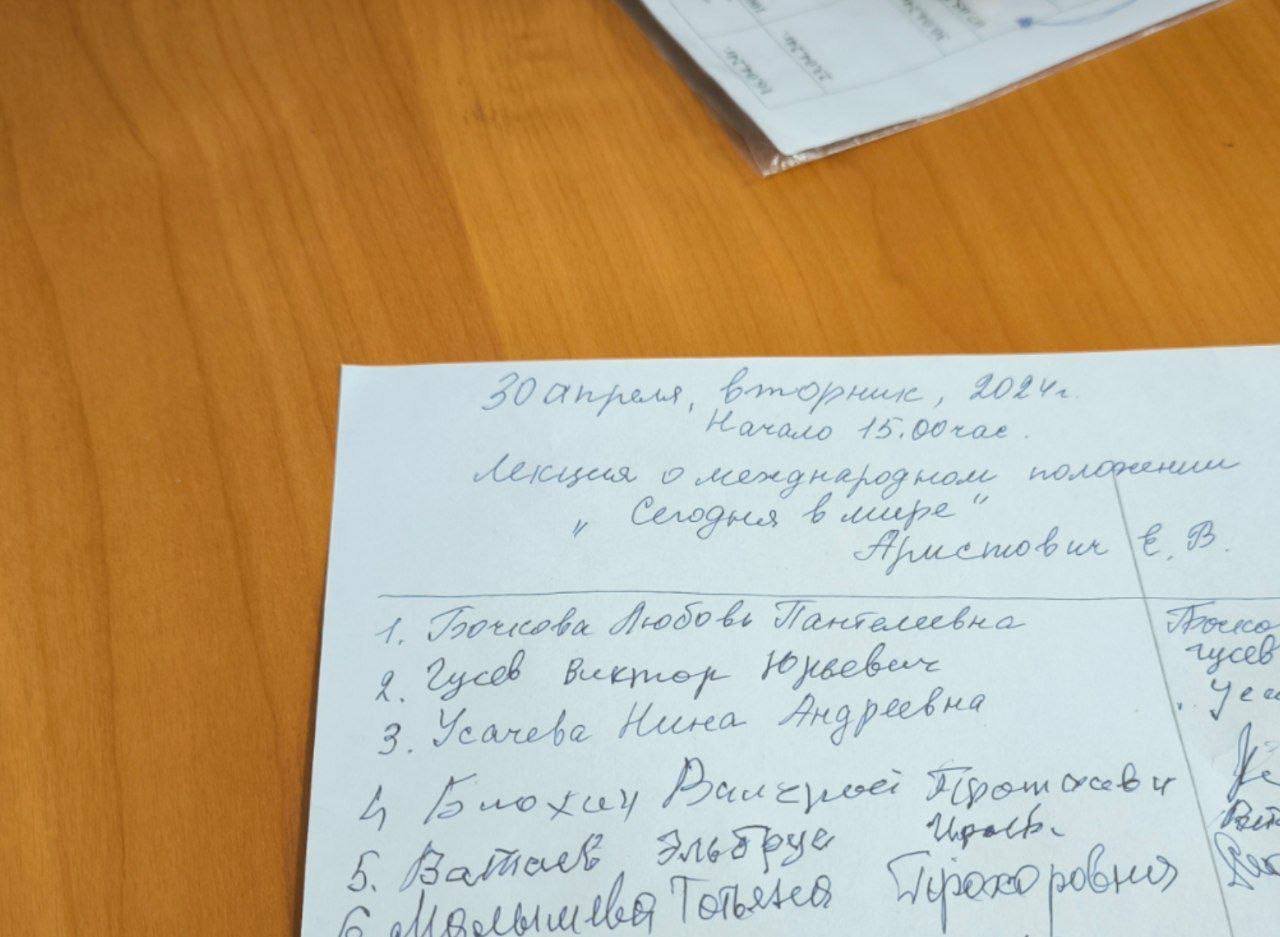 30 апреля, вторник, 2024г.
Начало 15.00час.
Лекция о международном положении
„ Сегодня в мире"
Аристович Е. В.
1. Бочкова Любовь Пантелеевна Бочко
2. Гусев Виктор Юрьевич Гусев
3. Усачева Нина Андреевна Уса
4 Блохин Валерий
5. Ватаев Эльбрус
6 Малышева Татьяна Прохоровна